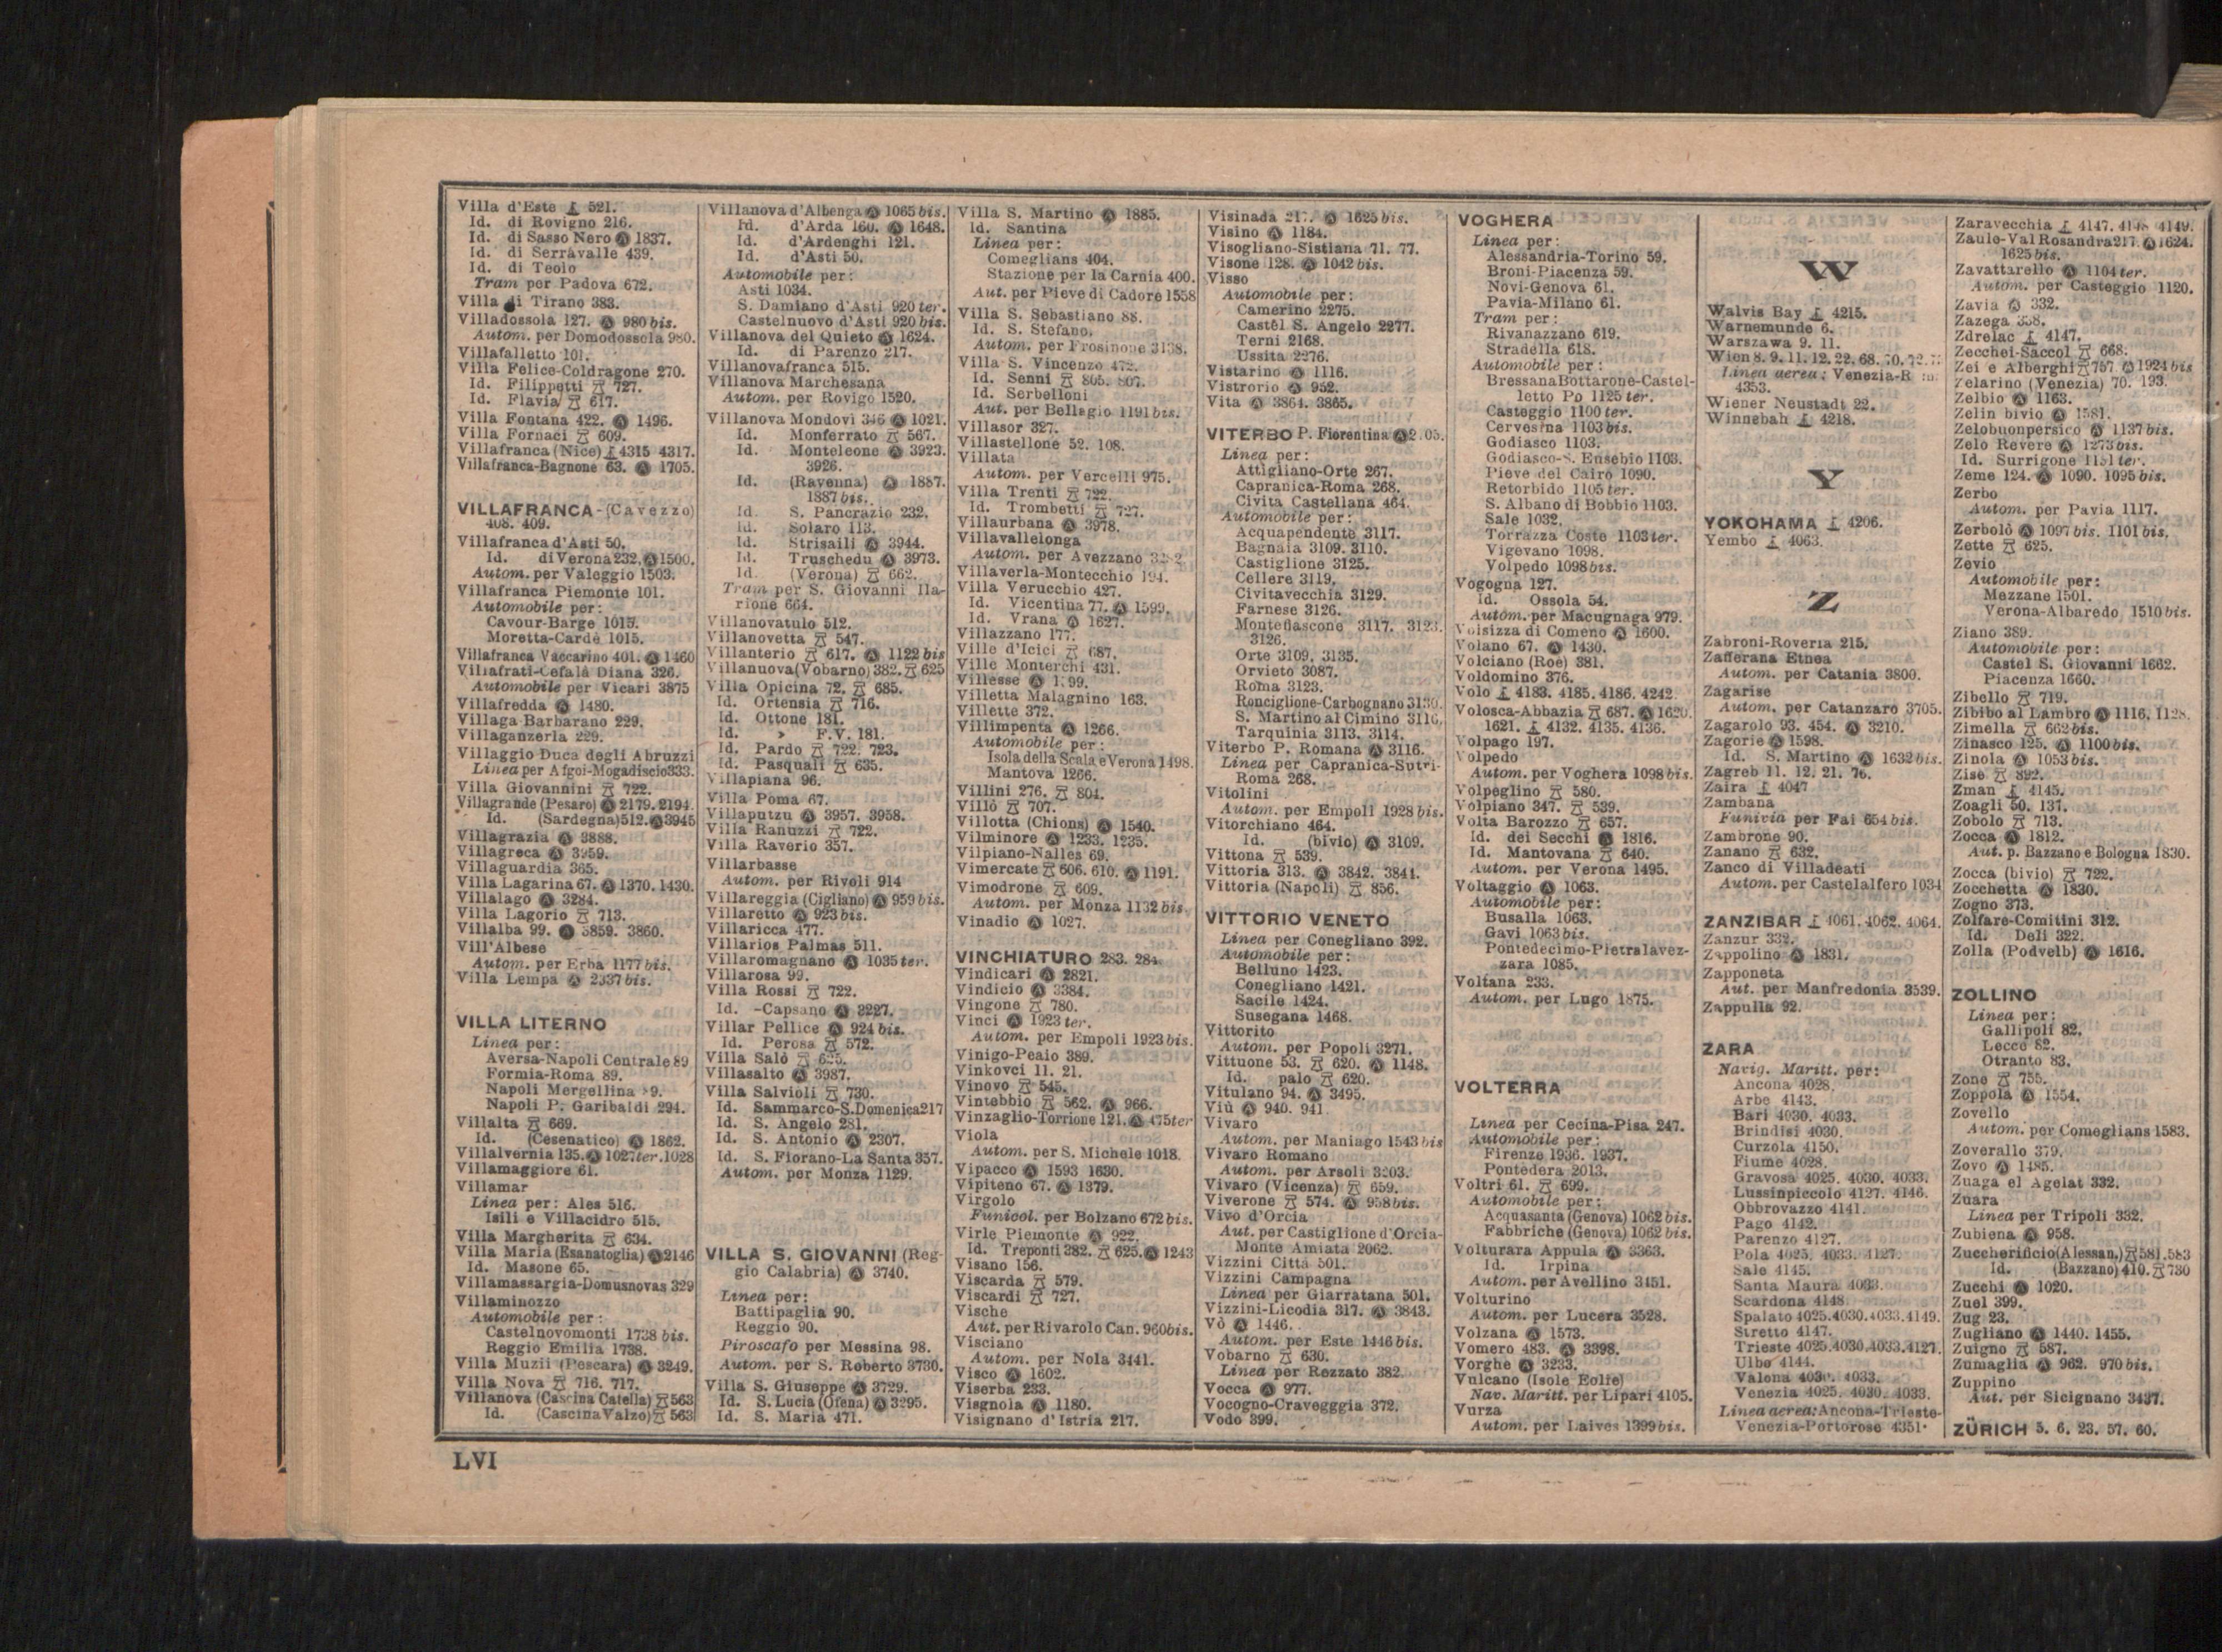 Villa d'Este 521.
Id. di Rovigno 216.
Id. di Sasso Nero Ⓐ 1837.
Id. di Serravalle 439.
Id. di Teolo
Tram per Padova 672.
Villa di Tirano 383.
Villadossola 127. Ⓐ 980 bis.
Autom. per Domodossola 980.
Villafalletto 101.
Villa Felice-Coldragone 270.
Id. Filippetti 727.
Id. Flavia 617.
Villa Fontana 422. Ⓐ 1496.
Villa Fornaci 609.
Villafranca (Nice) 4315 4317.
Villafranca-Bagnone 63. Ⓐ 1705.
VILLAFRANCA-(Cavezzo)
408. 409.
Villafranca d'Asti 50.
Id. di Verona 232. Ⓐ 1500.
Autom. per Valeggio 1503.
Villafranca Piemonte 101.
Automobile per:
Cavour-Barge 1015.
Moretta-Cardè 1015.
Villafranca Vaccarino 401. Ⓐ 1460
Villafrati-Cefalà Diana 326.
Automobile per Vicari 3875
Villafredda Ⓐ 1480.
Villaga Barbarano 229.
Villaganzerla 229.
Villaggio Duca degli Abruzzi
Linea per Afgoi-Mogadiscio 333.
Villa Giovannini 722.
Villagrande (Pesaro) Ⓐ 2179. 2194.
Id. (Sardegna) 512. Ⓐ 3945
Villagrazia Ⓐ 3888.
Villagreca Ⓐ 3959.
Villaguardia 365.
Villa Lagarina 67. Ⓐ 1370. 1430.
Villalago Ⓐ 3284.
Villa Lagorio 713.
Villalba 99. Ⓐ 3859. 3860.
Vill'Albese
Autom. per Erba 1177 bis.
Villa Lempa Ⓐ 2337 bis.
VILLA LITERNO
Linea per:
Aversa-Napoli Centrale 89
Formia-Roma 89.
Napoli Mergellina 9.
Napoli P. Garibaldi 294.
Villalta 669.
Id. (Cesenatico) Ⓐ 1862.
Villalvernia 135. Ⓐ 1027 ter. 1028
Villamaggiore 61.
Villamar
Linea per: Ales 516.
Isili e Villacidro 515.
Villa Margherita 634.
Villa Maria (Esanatoglia) Ⓐ 2146
Id. Masone 65.
Villamassargia-Domusnovas 329
Villaminozzo
Automobile per:
Castelnovomonti 1738 bis.
Reggio Emilia 1738.
Villa Muzii (Pescara) Ⓐ 3249.
Villa Nova 716. 717.
Villanova (Cascina Catella) 563
Id. (Cascina Valzo) 563
Villanova d'Albenga Ⓐ 1065 bis.
Id. d'Arda 160. Ⓐ 1648.
Id. d'Ardenghi 121.
Id. d'Asti 50.
Automobile per:
Asti 1034.
S. Damiano d'Asti 920 ter.
Castelnuovo d'Asti 920 bis.
Villanova del Quieto Ⓐ 1624.
Id. di Parenzo 217.
Villanovafranca 515.
Villanova Marchesana
Autom. per Rovigo 1520.
Villanova Mondovì 346 Ⓐ 1021.
Id. Monferrato 567.
Id. Monteleone Ⓐ 3923.
3926.
Id. (Ravenna) Ⓐ 1887.
1887 bis.
Id. S. Pancrazio 232.
Id. Solaro 113.
Id. Strisaili Ⓐ 3944.
Id. Truschedu Ⓐ 3973.
Id. (Verona) 662.
Tram per S. Giovanni Ila-
rione 664.
Villanovatulo 512.
Villanovetta 547.
Villanterio 617. Ⓐ 1122 bis
Villanuova (Vobarno) 382. 625
Villa Opicina 72. 685.
Id. Ortensia 716.
Id. Ottone 181.
Id. » F.V. 181.
Id. Pardo 722. 723.
Id. Pasquali 635.
Villapiana 96.
Villa Poma 67.
Villaputzu Ⓐ 3957. 3958.
Villa Ranuzzi 722.
Villa Raverio 357.
Villarbasse
Autom. per Rivoli 914
Villareggia (Cigliano) Ⓐ 959 bis.
Villaretto Ⓐ 923 bis.
Villaricca 477.
Villarios Palmas 511.
Villaromagnano Ⓐ 1035 ter.
Villarosa 99.
Villa Rossi 722.
Id. -Capsano Ⓐ 3227.
Villar Pellice Ⓐ 924 bis.
Id. Perosa 572.
Villa Salò
Villasalto Ⓐ 3987.
Villa Salvioli 730.
Id. Sammarco-S. Domenica 217
Id. S. Angelo 281.
Id. S. Antonio Ⓐ 2307.
Id. S. Fiorano-La Santa 357.
Autom. per Monza 1129.
VILLA S. GIOVANNI (Reg-
gio Calabria) Ⓐ 3740.
Linea per:
Battipaglia 90.
Reggio 90.
Piroscafo per Messina 98.
Autom. per S. Roberto 3730.
Villa S. Giuseppe Ⓐ 3729.
Id. S. Lucia (Ofena) Ⓐ 3295.
Id. S. Maria 471.
Villa S. Martino Ⓐ 1885.
Id. Santina
Linea per:
Comeglians 404.
Stazione per la Carnia 400.
Aut. per Pieve di Cadore 1558
Villa S. Sebastiano 88.
Id. S. Stefano.
Autom. per Frosinone 3138.
Villa S. Vincenzo 472.
Id. Senni 805. 807.
Id. Serbelloni
Aut. per Bellagio 1191 bis.
Villasor 327.
Villastellone 52. 108.
Villata
Autom. per Vercelli 975.
Villa Trenti 722.
Id. Trombetti 727.
Villaurbana Ⓐ 3978.
Villavallelonga
Autom. per Avezzano
Villaverla-Montecchio 194.
Villa Verucchio 427.
Id. Vicentina 77. Ⓐ 1599.
Id. Vrana Ⓐ 1627.
Villazzano 177.
Ville d'Icici 687.
Ville Monterchi 431.
Villesse Ⓐ
Villetta Malagnino 163.
Villette 372.
Villimpenta Ⓐ 1266.
Automobile per:
Isola della Scala e Verona 1498.
Mantova 1266.
Villini 276. 804.
Villò 707.
Villotta (Chions) Ⓐ 1540.
Vilminore Ⓐ 1233. 1235.
Vilpiano-Nalles 69.
Vimercate 606. 610. Ⓐ 1191.
Vimodrone 609.
Autom. per Monza 1132 bis.
Vinadio Ⓐ 1027.
VINCHIATURO 283. 284.
Vindicari Ⓐ 2821.
Vindicio Ⓐ 3384.
Vingone 780.
Vinci Ⓐ 1923 ter.
Autom. per Empoli 1923 bis.
Vinigo-Peaio 389.
Vinkovci 11. 21.
Vinovo 545.
Vintebbio 562. Ⓐ 966.
Vinzaglio-Torrione 121. Ⓐ 475 ter
Viola
Autom. per S. Michele 1018.
Vipacco Ⓐ 1593 1630.
Vipiteno 67. Ⓐ 1379.
Virgolo
Funicol. per Bolzano 672 bis.
Virle Piemonte Ⓐ 922.
Id. Treponti 382. 625. Ⓐ 1243
Visano 156.
Viscarda 579.
Viscardi 727.
Vische
Aut. per Rivarolo Can. 960 bis.
Visciano
Autom. per Nola 3441.
Visco Ⓐ 1602.
Viserba 233.
Visgnola Ⓐ 1180.
Visignano d'Istria 217.
Visinada 217. Ⓐ 1625 bis.
Visino Ⓐ 1184.
Visogliano-Sistiana 71. 77.
Visone 128. Ⓐ 1042 bis.
Visso
Automobile per:
Camerino 2275.
Castel S. Angelo 2277.
Terni 2168.
Ussita 2276.
Vistarino Ⓐ 1116.
Vistrorio Ⓐ 952.
Vita Ⓐ 3864. 3865.
VITERBO P. Fiorentina Ⓐ
Linea per:
Attigliano-Orte 267.
Capranica-Roma 268.
Civita Castellana 464.
Automobile per:
Acquapendente 3117.
Bagnaia 3109. 3110.
Castiglione 3125.
Cellere 3119.
Civitavecchia 3129.
Farnese 3126.
Montefiascone 3117. 3123.
3126.
Orte 3109. 3135.
Orvieto 3087.
Roma 3123.
Ronciglione-Carbognano 3130.
S. Martino al Cimino 3116.
Tarquinia 3113. 3114.
Viterbo P. Romana Ⓐ 3116.
Linea per Capranica-Sutri-
Roma 268.
Vitolini
Autom. per Empoli 1928 bis.
Vitorchiano 464.
Id. (bivio) Ⓐ 3109.
Vittona 539.
Vittoria 313. Ⓐ 3842. 3844.
Vittoria (Napoli) 856.
VITTORIO VENETO
Linea per Conegliano 392.
Automobile per:
Belluno 1423.
Conegliano 1421.
Sacile 1424.
Susegana 1468.
Vittorito
Autom. per Popoli 3271.
Vittuone 53. 620. Ⓐ 1148.
Id. palo 620.
Vitulano 94. Ⓐ 3495.
Viù Ⓐ 940. 941.
Vivaro
Autom. per Maniago 1543 bis
Vivaro Romano
Autom. per Arsoli 3203.
Vivaro (Vicenza) 659.
Viverone 574. Ⓐ 958 bis.
Vivo d'Orcia
Aut. per Castiglione d'Orcia-
Monte Amiata 2062.
Vizzini Città 501.
Vizzini Campagna
Linea per Giarratana 501.
Vizzini-Licodia 317. Ⓐ 3843.
Vò Ⓐ 1446.
Autom. per Este 1446 bis.
Vobarno 630.
Linea per Rezzato 382.
Vocca Ⓐ 977.
Vocogno-Cravegggia 372.
Vodo 399.
VOGHERA
Linea per:
Alessandria-Torino 59.
Broni-Piacenza 59.
Novi-Genova 61.
Pavia-Milano 61.
Tram per:
Rivanazzano 619.
Stradella 618.
Automobile per:
Bressana Bottarone-Castel-
letto Po 1125 ter.
Casteggio 1100 ter.
Cervesina 1103 bis.
Godiasco 1103.
Godiasco-S. Eusebio 1103.
Pieve del Cairo 1090.
Retorbido 1105 ter.
S. Albano di Bobbio 1103.
Sale 1032.
Torrazza Coste 1103 ter.
Vigevano 1098.
Volpedo 1098 bis.
Vogogna 127.
Id. Ossola 54.
Autom. per Macugnaga 979.
Voisizza di Comeno Ⓐ 1600.
Volano 67. Ⓐ 1430.
Volciano (Roè) 381.
Voldomino 376.
Volo 4183. 4185. 4186. 4242.
Volosca-Abbazia 687. Ⓐ 1620.
1621. 4132. 4135. 4136.
Volpago 197.
Volpedo
Autom. per Voghera 1098 bis.
Volpeglino 580.
Volpiano 347. 539.
Volta Barozzo 657.
Id. dei Secchi Ⓐ 1816.
Id. Mantovana 640.
Autom. per Verona 1495.
Voltaggio Ⓐ 1063.
Automobile per:
Busalla 1063.
Gavi 1063 bis.
Pontedecimo-Pietralavez-
zara 1085.
Voltana 233.
Autom. per Lugo 1875.
VOLTERRA
Linea per Cecina-Pisa 247.
Automobile per:
Firenze 1936. 1937.
Pontedera 2013.
Voltri 61. 699.
Automobile per:
Acquasanta (Genova) 1062 bis.
Fabbriche (Genova) 1062 bis.
Volturara Appula Ⓐ 3363.
Id. Irpina
Autom. per Avellino 3451.
Volturino
Autom. per Lucera 3528.
Volzana Ⓐ 1573.
Vomero 483. Ⓐ 3398.
Vorghe Ⓐ 3233.
Vulcano (Isole Eolie)
Nav. Maritt. per Lipari 4105.
Vurza
Autom. per Laives 1399 bis.
W
Walvis Bay 4215.
Warnemunde 6.
Warszawa 9. 11.
Wien 8. 9. 11. 12. 22. 68. 70.
Linea aerea: Venezia-R
4353.
Wiener Neustadt 22.
Winnebah 4218.
Y
YOKOHAMA 4206.
Yembo 4063.
Z
Zabroni-Roveria 215.
Zafferana Etnea
Autom. per Catania 3800.
Zagarise
Autom. per Catanzaro 3705.
Zagarolo 93. 454. Ⓐ 3210.
Zagorie Ⓐ 1598.
Id. S. Martino Ⓐ 1632 bis.
Zagreb 11. 12. 21. 76.
Zaira 4047
Zambana
Funivia per Fai 654 bis.
Zambrone 90.
Zanano 632.
Zanco di Villadeati
Autom. per Castelalfero 1034
ZANZIBAR 4061. 4062. 4064.
Zanzur 332.
Zappolino Ⓐ 1831.
Zapponeta
Aut. per Manfredonia 3539.
Zappulla 92.
ZARA
Navig. Maritt. per:
Ancona 4028.
Arbe 4143.
Bari 4030. 4033.
Brindisi 4030.
Curzola 4150.
Fiume 4028.
Gravosa 4025. 4030. 4033.
Lussinpiccolo 4127. 4146.
Obbrovazzo 4141.
Pago 4142.
Parenzo 4127.
Pola 4025. 4033. 4127.
Sale 4145.
Santa Maura 4033.
Scardona 4148
Spalato 4025. 4030. 4033. 4149.
Stretto 4147.
Trieste 4025. 4030. 4033. 4127.
Ulbo 4144.
Valona 4033.
Venezia 4025. 4030. 4033.
Linea aerea: Ancona-Trieste-
Venezia-Portorose 4351.
Zaravecchia 4147. 4148 4149.
Zaule-Val Rosandra 217. Ⓐ 1624.
1625 bis.
Zavattarello Ⓐ 1104 ter.
Autom. per Casteggio 1120.
Zavia Ⓐ 332.
Zazega 358.
Zdrelac 4147.
Zecchei-Saccol 668.
Zei e Alberghi 757. Ⓐ 1924 bis
Zelarino (Venezia) 70. 193.
Zelbio Ⓐ 1163.
Zelin bivio Ⓐ 1581.
Zelobuonpersico Ⓐ 1137 bis.
Zelo Revere Ⓐ 1273 bis.
Id. Surrigone 1151 ter.
Zeme 124. Ⓐ 1090. 1095 bis.
Zerbo
Autom. per Pavia 1117.
Zerbolò Ⓐ 1097 bis. 1101 bis.
Zette 625.
Zevio
Automobile per:
Mezzane 1501.
Verona-Albaredo 1510 bis.
Ziano 389.
Automobile per:
Castel S. Giovanni 1662.
Piacenza 1660.
Zibello 719.
Zibibo al Lambro Ⓐ 1116. 1128.
Zimella 662 bis.
Zinasco 125. Ⓐ 1100 bis.
Zinola Ⓐ 1053 bis.
Zise 892.
Zman 4145.
Zoagli 50. 137.
Zobolo 713.
Zocca Ⓐ 1812.
Aut. p. Bazzano e Bologna 1830.
Zocca (bivio) 722.
Zocchetta Ⓐ 1830.
Zogno 373.
Zolfare-Comitini 312.
Id. Deli 322.
Zolla (Podvelb) Ⓐ 1616.
ZOLLINO
Linea per:
Gallipoli 82.
Lecce 82.
Otranto 83.
Zone 755.
Zoppola Ⓐ 1554.
Zovello
Autom. per Comeglians 1583.
Zoverallo 379.
Zovo Ⓐ 1485.
Zuaga el Agelat 332.
Zuara
Linea per Tripoli 332.
Zubiena Ⓐ 958.
Zuccherificio (Alessan.) 581. 583
Id. (Bazzano) 410. 730
Zucchi Ⓐ 1020.
Zuel 399.
Zug 23.
Zugliano Ⓐ 1440. 1455.
Zuigno 587.
Zumaglia Ⓐ 962. 970 bis.
Zuppino
Aut. per Sicignano 3437.
ZÜRICH 5. 6. 23. 57. 60.
LVI